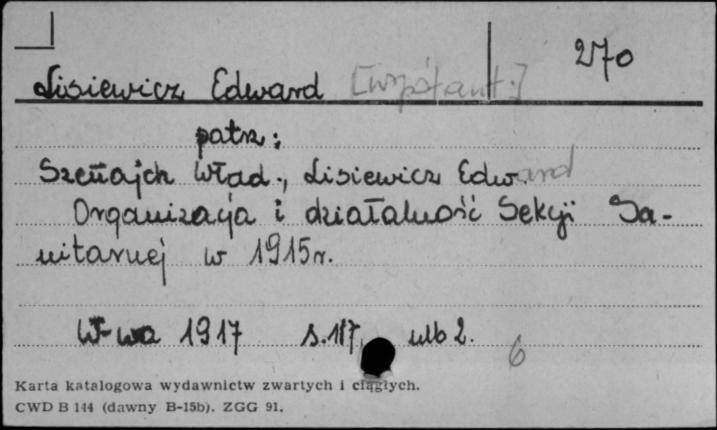 270
Lisiewicz Edward [współaut.]
patrz:
Szenajch Wład., Lisiewicz Edward
Organizacja i działalność Sekcji Sa-
nitarnej w 1915 r.
W-wa 1917 s. 117, nlb 2.
6
Karta katalogowa wydawnictw zwartych i ciągłych.
CWD B 144 (dawny B-15b). ZGG 91.